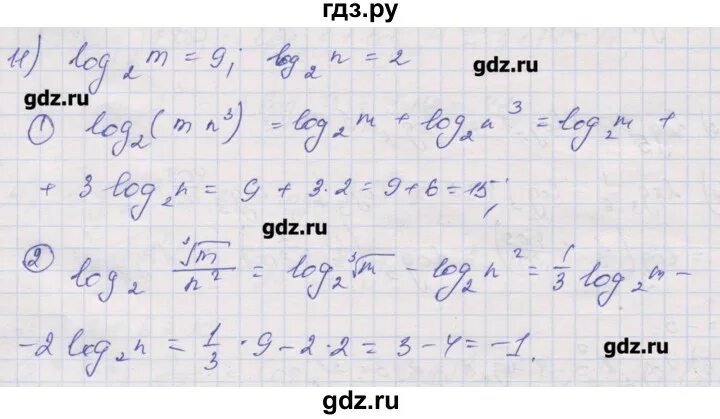 гдз.ру
11) log₂ m = 9; log₂ n = 2
gdz.ru
gdz.ru
① log₂(m n³) = log₂ m + log₂ n³ = log₂ m +
+ 3 log₂ n = 9 + 3·2 = 9 + 6 = 15;
gdz.ru
② log₂ ∛m / n² = log₂ ∛m - log₂ n² = 1/3 log₂ m -
- 2 log₂ n = 1/3 · 9 - 2·2 = 3 - 4 = -1.
gdz.ru
gdz.ru